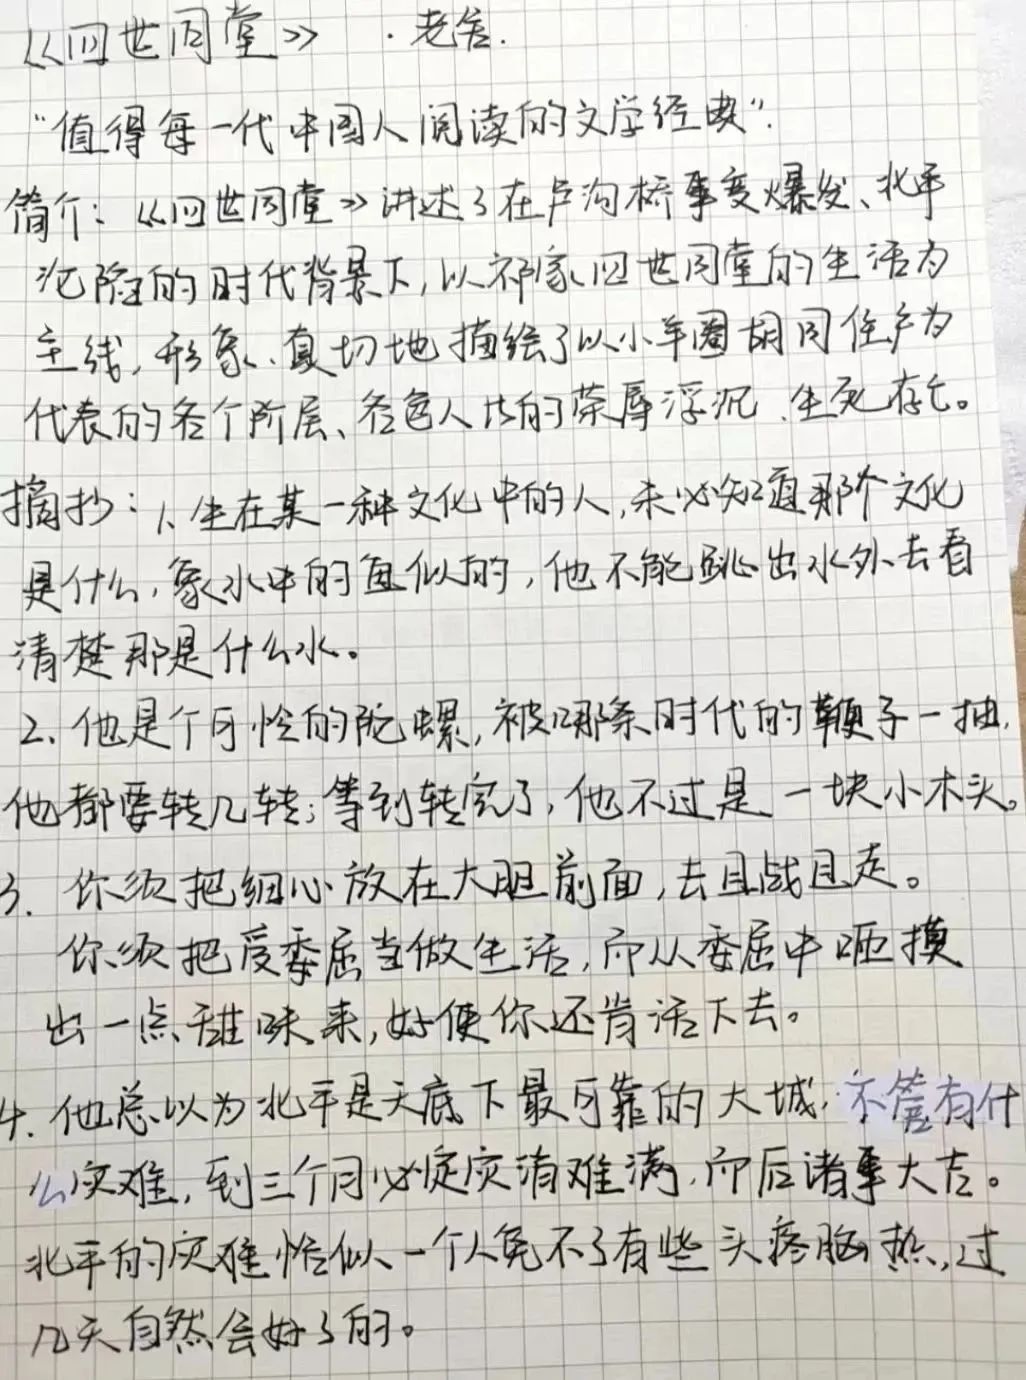 《四世同堂》 ·老舍.
“值得每一代中国人阅读的文学经典”.
简介：《四世同堂》讲述了在卢沟桥事变爆发、北平
沦陷的时代背景下，以祁家四世同堂的生活为
主线，形象、真切地描绘了以小羊圈胡同住户为
代表的各个阶层、各色人的荣辱浮沉、生死存亡。
摘抄：1、生在某一种文化中的人，未必知道那个文化
是什么，象水中的鱼似的，他不能跳出水外去看
清楚那是什么水。
2、他是个可怜的陀螺，被哪条时代的鞭子一抽，
他都要转几转；等到转完了，他不过是一块小木头。
3. 你须把细心放在大胆前面，去且战且走。
你须把受委屈当做生活，而从委屈中咂摸
出一点甜味来，好使你还肯活下去。
4. 他总以为北平是天底下最可靠的大城，不管有什
么灾难，到三个月必定灾消难满，而后诸事大吉。
北平的灾难恰似一个人免不了有些头疼脑热，过
几天自然会好了的。